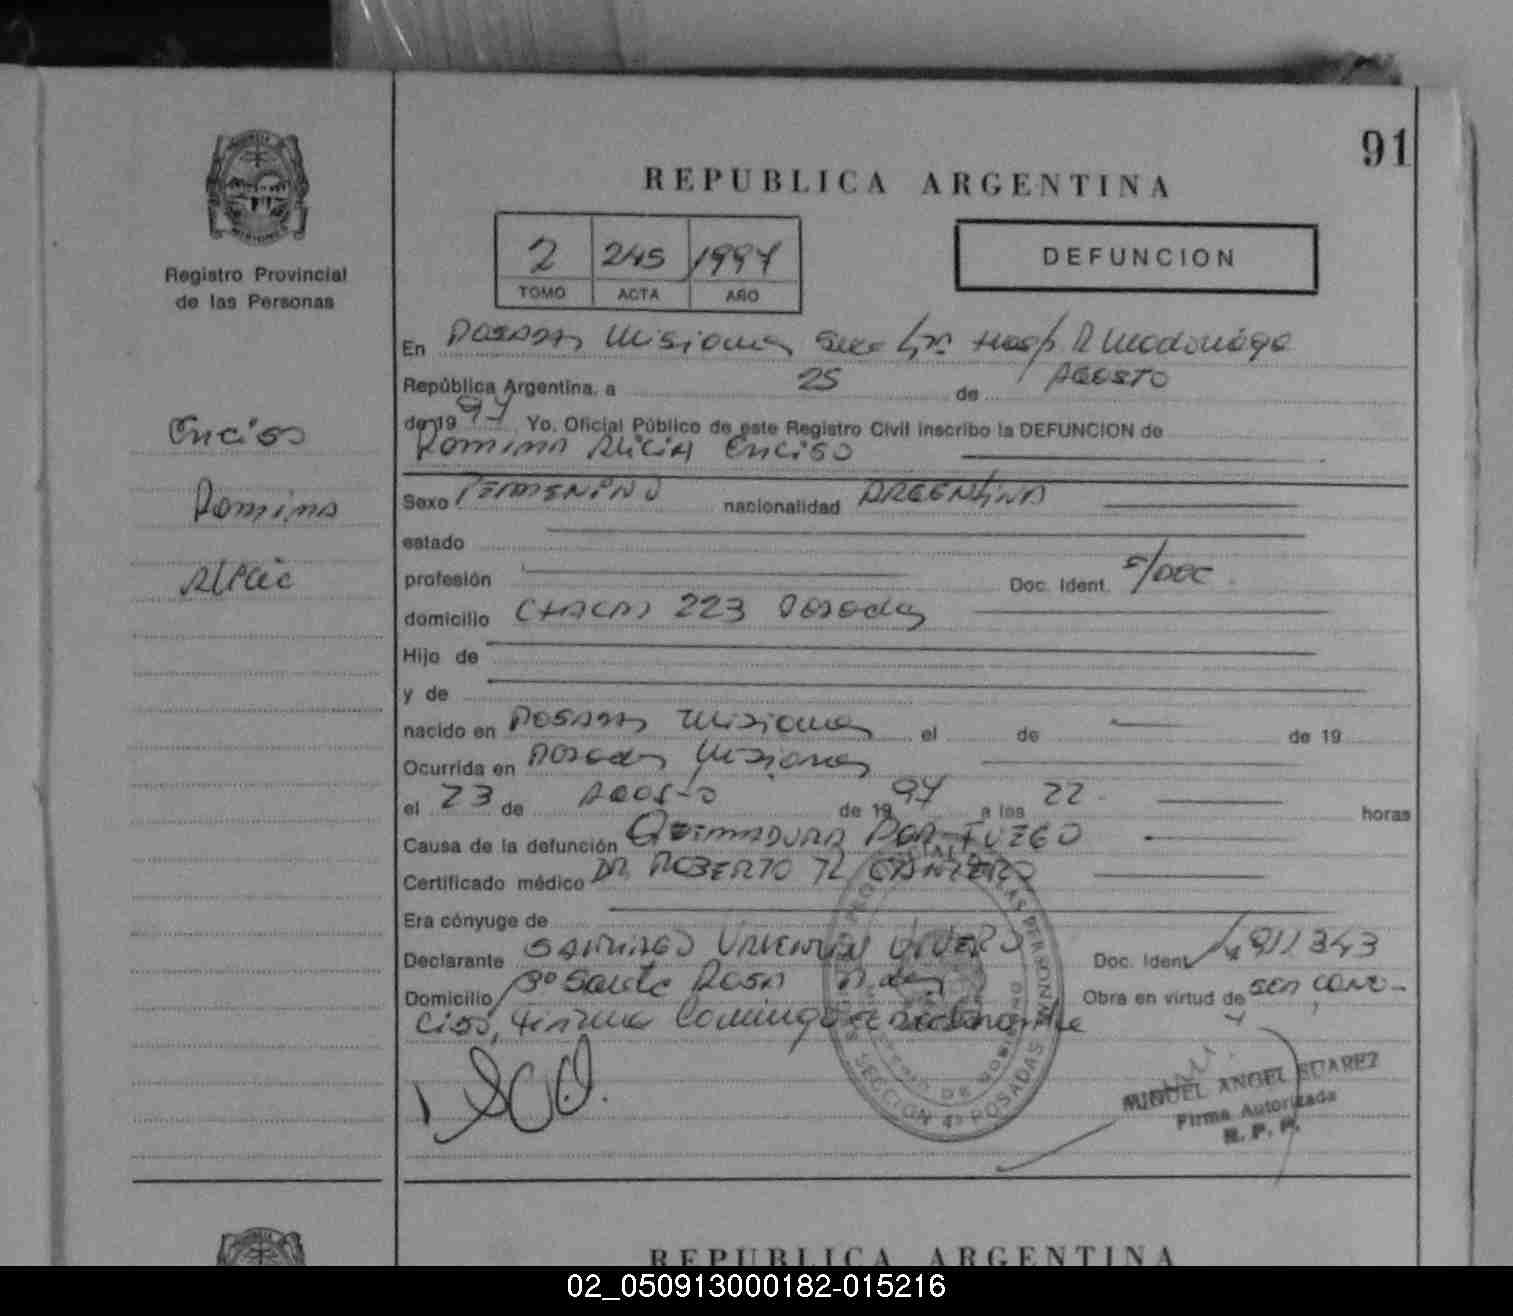 91
REPUBLICA ARGENTINA
2 245 1997
TOMO ACTA AÑO
DEFUNCION
Registro Provincial
de las Personas
Enciso
Romina
Alicia
En Posadas Misiones Hosp. R Madariaga
República Argentina, a 25 de Agosto
de 1997 Yo, Oficial Público de este Registro Civil inscribo la DEFUNCION de
Romina Alicia Enciso
Sexo Femenino nacionalidad Argentina
estado
profesión Doc. Ident. s/doc
domicilio Chacra 223 Posadas
Hijo de
y de
nacido en Posadas Misiones el de de 19
Ocurrida en Posadas Misiones
el 23 de Agosto de 1997 a las 22 horas
Causa de la defunción Quemadura por fuego
Certificado médico Dr. Roberto
Era cónyuge de
Declarante Doc. Ident. 911343
Domicilio Bº Santa Rosa Obra en virtud de ser cono-
ciso, firma conmigo el declarante
SECCION 4ª POSADAS
MIGUEL ANGEL SUAREZ
Firma Autorizada
R. P. P.
REPUBLICA ARGENTINA
02_050913000182-015216